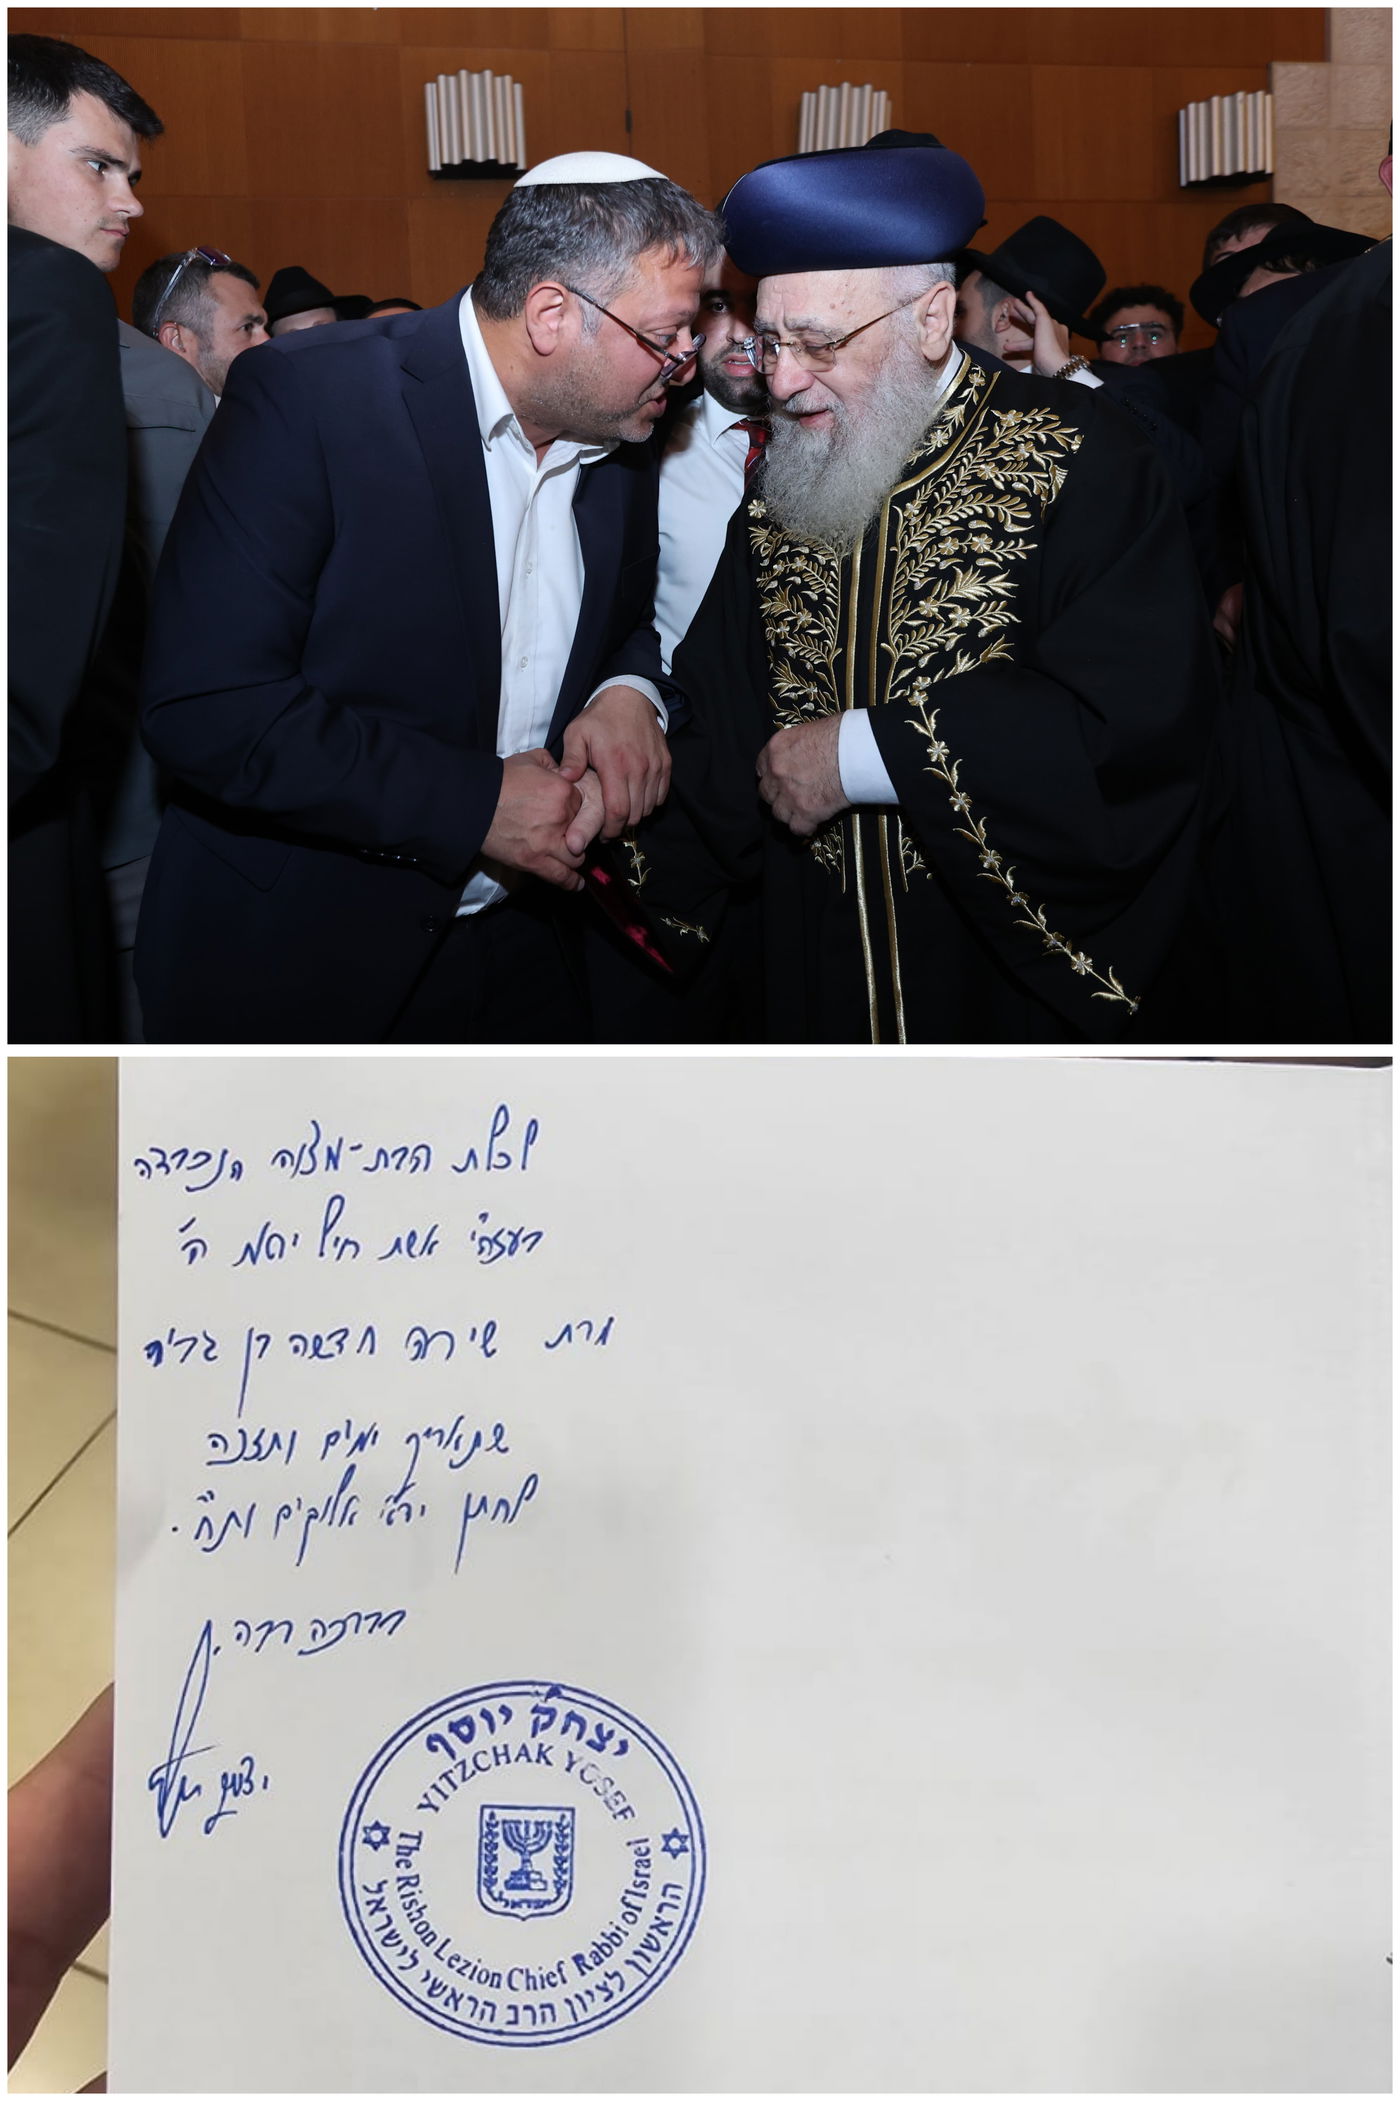 לכלת הבת-מצוה הנכבדה
בעזה"י אשת חיל יראת ה'
מרת שירה חדשה בן גביר
שתאריך ימים ותזכה
לחתן ירא אלוקים ות"ח.
בברכה רבה,
יצחק יוסף
יצחק יוסף
YITZCHAK YOSEF
The Rishon Lezion Chief Rabbi of Israel
הראשון לציון הרב הראשי לישראל
ישראל